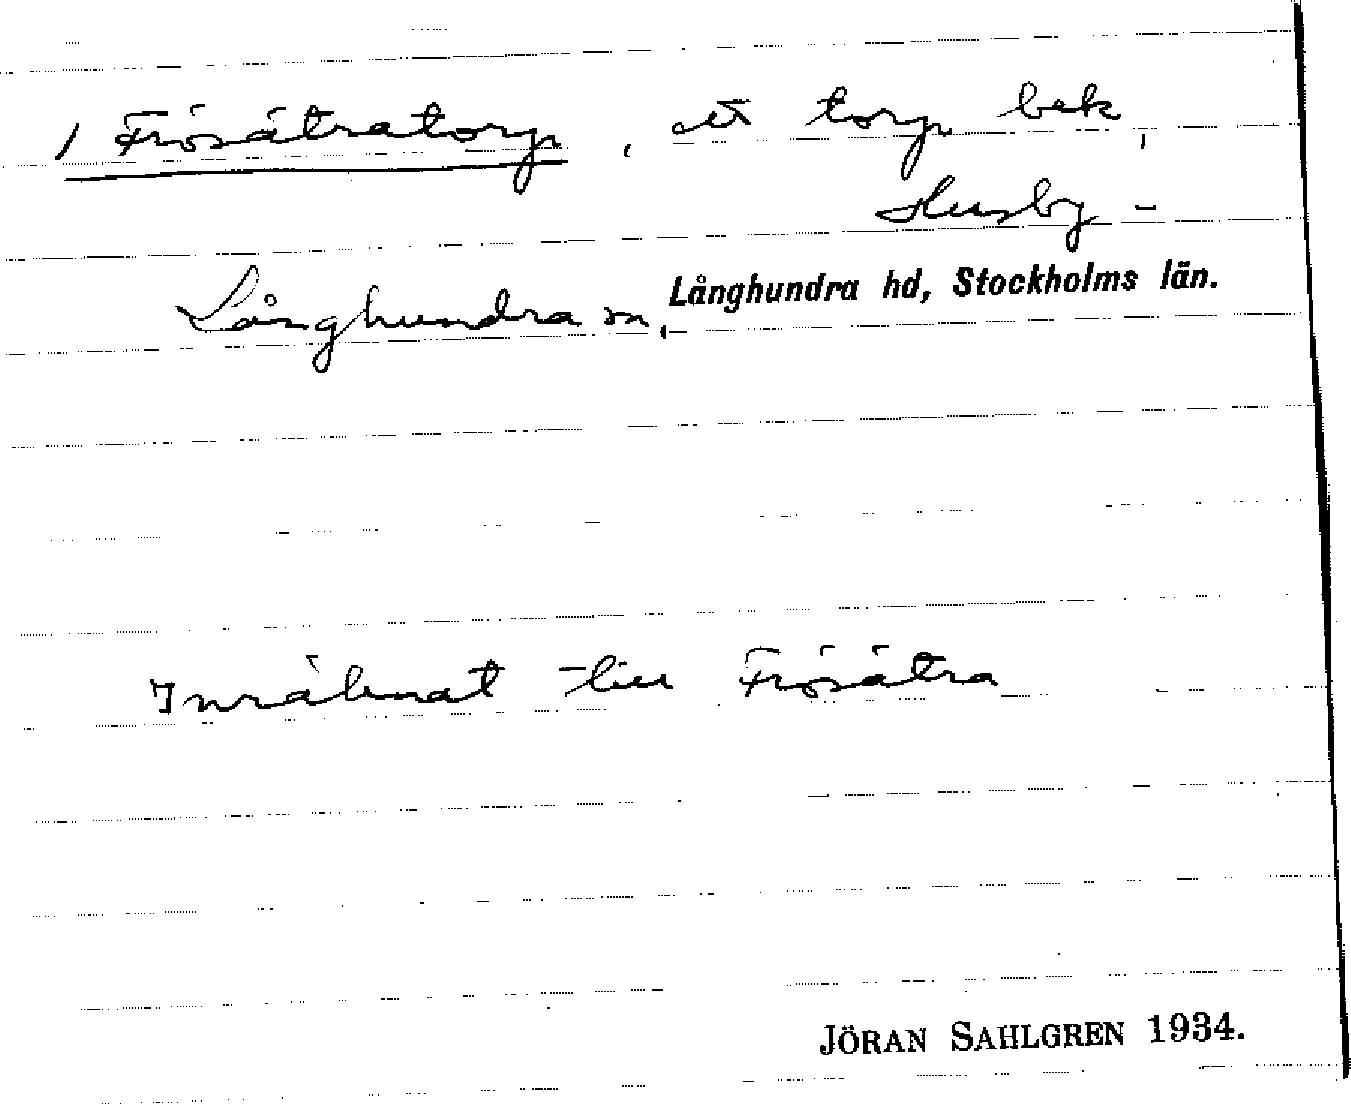 / Frösätratorp, ett torp bek,
Husby-
Långhundra sn, Långhundra hd, Stockholms län.
Inräknat till Frösätra
JÖRAN SAHLGREN 1934.